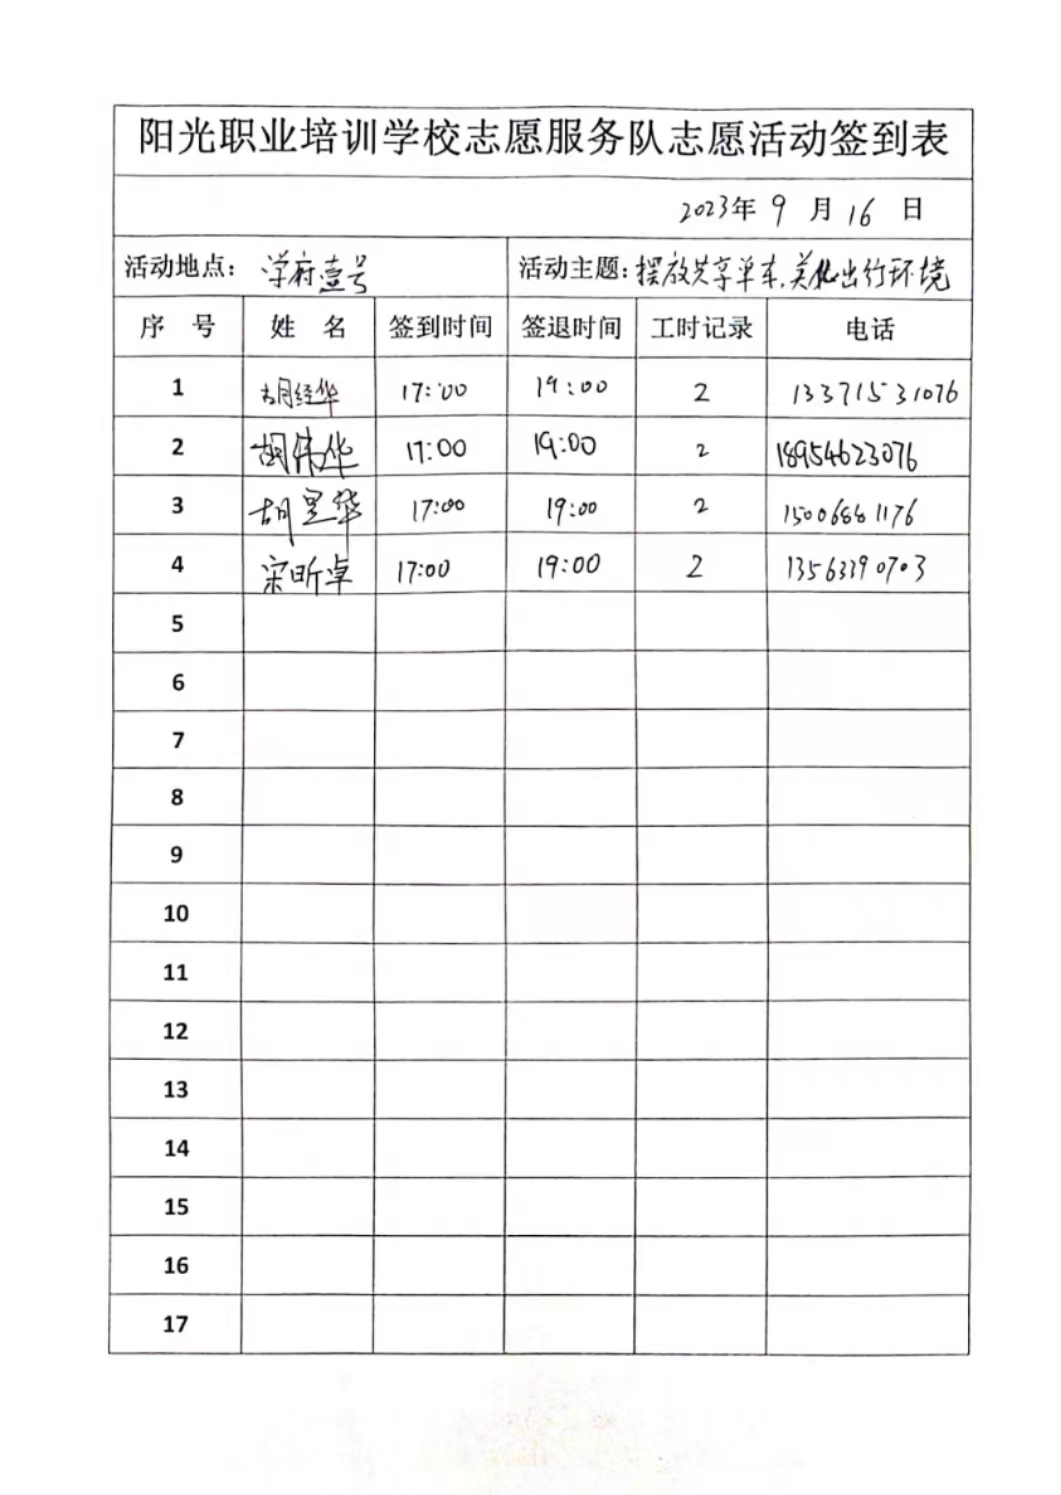 阳光职业培训学校志愿服务队志愿活动签到表
2023年 9 月 16 日
活动地点: 学府壹号 活动主题: 摆放共享单车,美化出行环境
序 号 姓 名 签到时间 签退时间 工时记录 电话
1 胡经华 17:00 19:00 2 13371531076
2 胡伟华 17:00 19:00 2 18954623076
3 胡昱华 17:00 19:00 2 15006881176
4 宋昕卓 17:00 19:00 2 13563390703
5
6
7
8
9
10
11
12
13
14
15
16
17